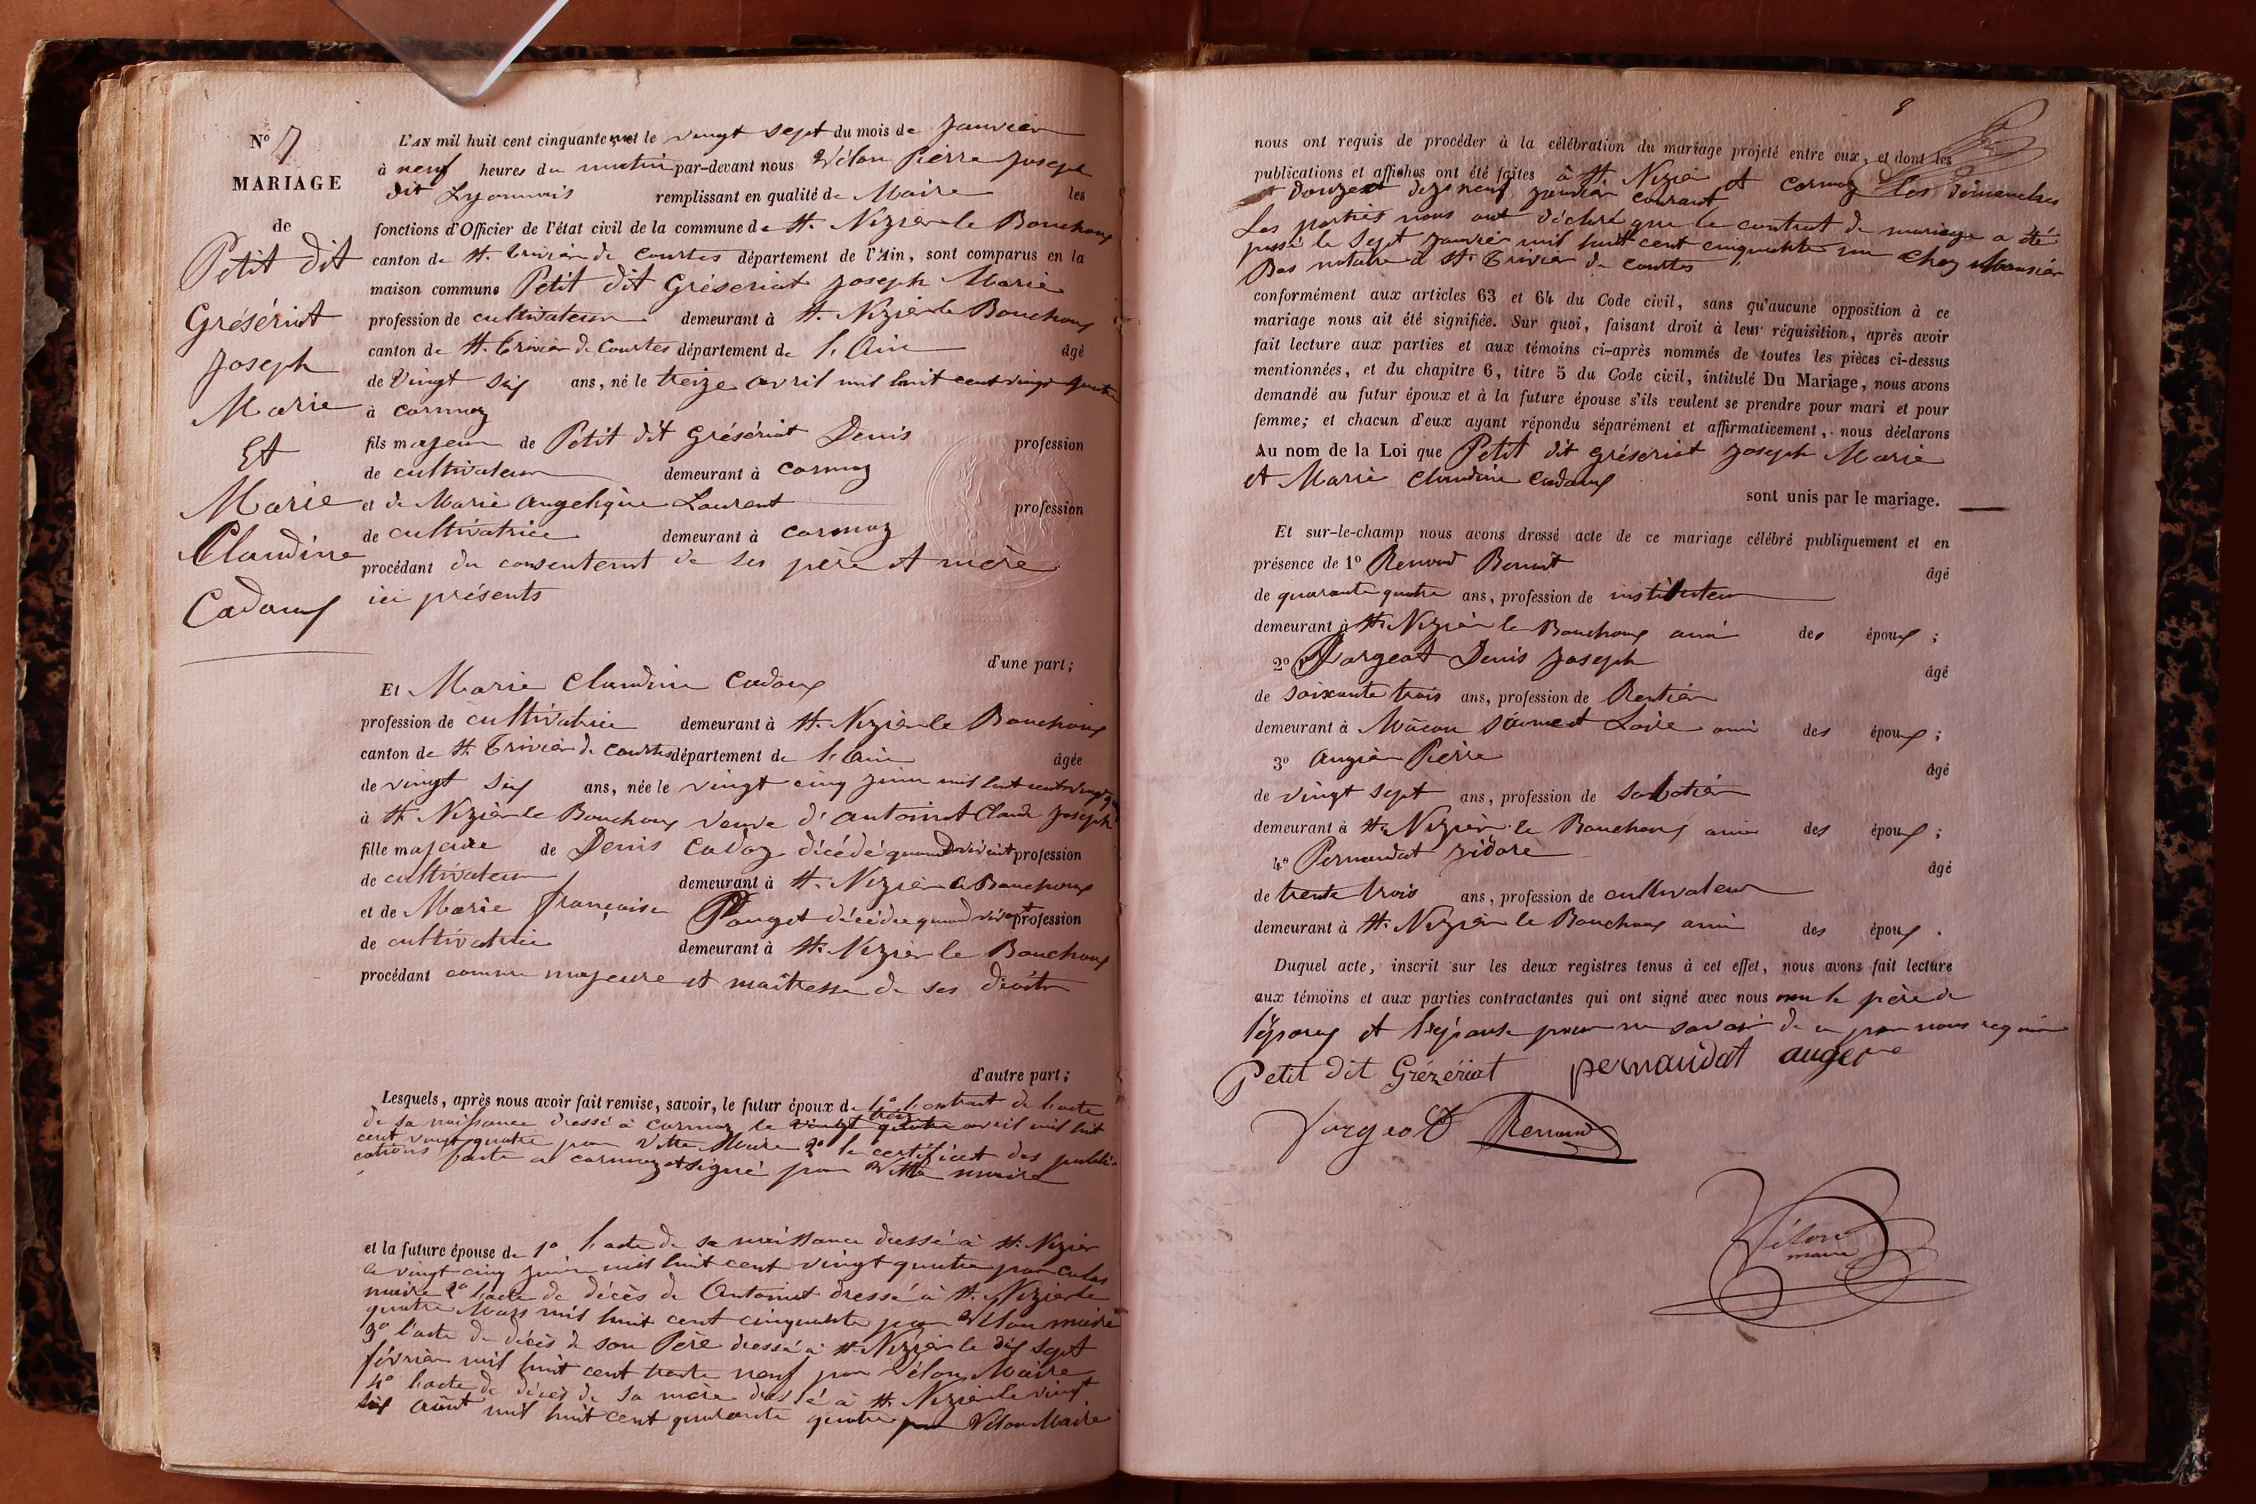 N° 7
MARIAGE
de
Petit dit
Grésériat
Joseph
Marie
Et
Marie
Claudine
Cadoux
L'AN mil huit cent cinquante un et le vingt sept du mois de Janvier
à neuf heures du matin par-devant nous Vélon Pierre Joseph
dit Lyonnais remplissant en qualité de Maire les
fonctions d'Officier de l'état civil de la commune de St. Nizier le Bouchoux
canton de St. Trivier de Courtes département de l'Ain, sont comparus en la
maison commune Petit dit Gréseriat Joseph Marie
profession de cultivateur demeurant à St. Nizier le Bouchoux
canton de St. Trivier de Courtes département de l'Ain âgé
de vingt six ans, né le treize avril mil huit cent vingt quatre
à cormoz
fils majeur de Petit dit Grésériat Denis profession
de cultivateur demeurant à cormoz
et de Marie angelique Laurent profession
de cultivatrice demeurant à cormoz
procédant du consentemt de ses père et mère
ici présents
d'une part;
Et Marie Claudine Cadoux
profession de cultivatrice demeurant à St. Nizier le Bouchoux
canton de St. Trivier de Courtes département de l'Ain âgée
de vingt six ans, née le vingt cinq juin mil huit cent vingt
à St. Nizier le Bouchoux veuve d'antoinat Claude Joseph
fille majeure de Denis Cadoz décédé quand vivait profession
de cultivateur demeurant à St. Nizier le Bouchoux
et de Marie françoise Pauget décédée quand vivait profession
de cultivatrice demeurant à St. Nizier le Bouchoux
procédant comme majeure et maîtresse de ses droits
d'autre part;
Lesquels, après nous avoir fait remise, savoir, le futur époux de 1° l'extrait de l'acte
de sa naissance dressé à cormoz le treize avril mil huit
cent vingt quatre par Vitte Maire 2° le certificat des publi-
cations faite a cormoz et signé par Vitte maire
et la future épouse de 1° l'acte de sa naissance dressé à St. Nizier
le vingt cinq juin mil huit cent vingt quatre par
maire 2° l'acte de décès de Antoinat dressé à St. Nizier le
quatre Mars mil huit cent cinquante par Vélon maire
3° l'acte de décès de son Père dressé à St. Nizier le dix sept
février mil huit cent trente neuf par Vélon Maire
4° l'acte de décès de sa mère dressé à St. Nizier le vingt
six août mil huit cent quarante quatre par Vélon Maire
8
nous ont requis de procéder à la célébration du mariage projeté entre eux, et dont les
publications et affiches ont été faites à St. Nizier et cormoz les dimanches
douze et dix neuf janvier courant
Les parties nous ont déclaré que le contrat de mariage a été
passé le Sept Janvier mil huit cent cinquante un chez Monsieur
Bas notaire à St. Trivier de courtes
conformément aux articles 63 et 64 du Code civil, sans qu'aucune opposition à ce
mariage nous ait été signifiée. Sur quoi, faisant droit à leur réquisition, après avoir
fait lecture aux parties et aux témoins ci-après nommés de toutes les pièces ci-dessus
mentionnées, et du chapitre 6, titre 5 du Code civil, intitulé Du Mariage, nous avons
demandé au futur époux et à la future épouse s'ils veulent se prendre pour mari et pour
femme; et chacun d'eux ayant répondu séparément et affirmativement, nous déclarons
Au nom de la Loi que Petit dit gréseriat Joseph Marie
et Marie Claudine Cadoux
sont unis par le mariage.
Et sur-le-champ nous avons dressé acte de ce mariage célébré publiquement et en
présence de 1° Renoud Benoit âgé
de quarante quatre ans, profession de instituteur
demeurant à St. Nizier le Bouchoux ami des époux;
2° Vargeot Denis Joseph âgé
de soixante trois ans, profession de Rentier
demeurant à Mâcon Saône et Loire ami des époux;
3° Augier Pierre âgé
de vingt sept ans, profession de sabotier
demeurant à St. Nizier le Bouchoux ami des époux;
4° Pernaudat zidore âgé
de trente trois ans, profession de cultivateur
demeurant à St. Nizier le Bouchoux ami des époux.
Duquel acte, inscrit sur les deux registres tenus à cet effet, nous avons fait lecture
aux témoins et aux parties contractantes qui ont signé avec nous non le père de
l'époux et l'épouse pour ne savoir de ce par nous requis
Petit dit Grézériat pernaudat augere
Vargeot Renoud
Vélon
maire